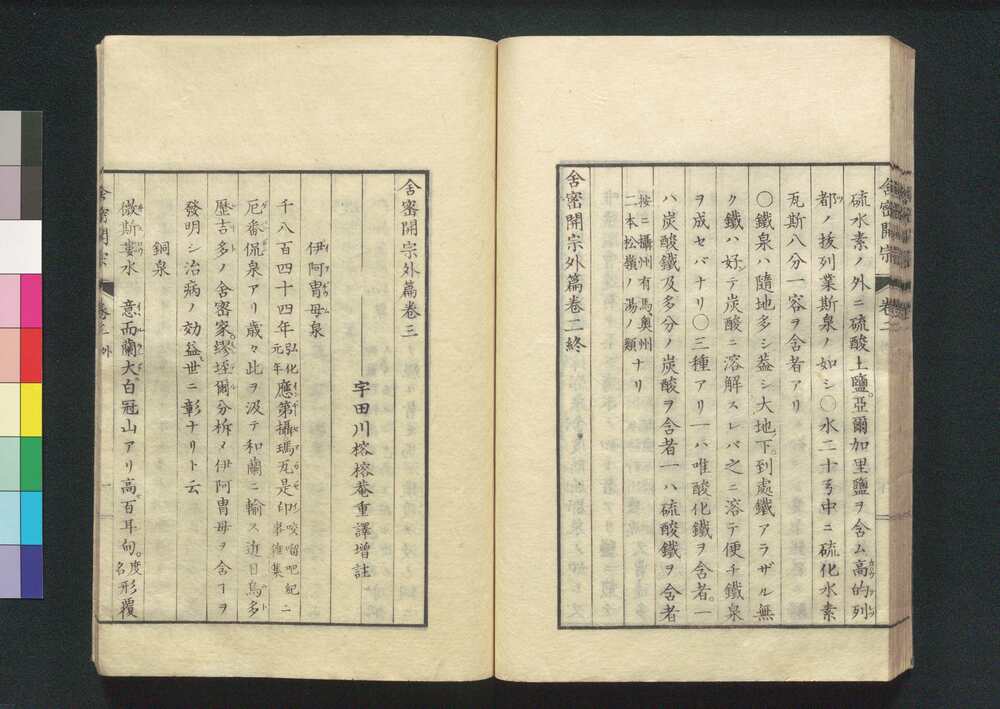 舎密開宗 卷二
硫水素ノ外ニ硫酸土鹽亞爾加里鹽ヲ含ム高的列
都ノ拔列業斯泉ノ如シ〇水二十弓中ニ硫化水素
瓦斯八分一容ヲ舎者アリ
〇鐵泉ハ隨地多シ葢シ大地下到處鐵アラザル無
ク鐵ハ好テ炭酸ニ溶解スレバ之ニ溶テ便チ鐵泉
ヲ成セバナリ〇三種アリ一ハ唯酸化鐵ヲ含者一
ハ炭酸鐵及多分ノ炭酸ヲ含者一ハ硫酸鐵ヲ含者
按ニ攝州有馬奥州
二本松嶽ノ湯ノ類
ナリ
舎密開宗外篇卷二終
舎密開宗外篇卷三
宇田川榕榕菴重譯增註
伊阿冑母泉
千八百四十四年弘化元年應第攝瑪瓦是印咬𠺕吧紀ニ
厄番侃泉アリ歳々此ヲ汲テ和蘭ニ輸ス近日烏多
歴吉多ノ舎密家繆埀爾分析メ伊阿冑母ヲ含ヿヲ
發明シ治病ノ効益世ニ彰ナリト云
銅泉
傲斯婁水 意而蘭大白冠山アリ高百耳旬度名形覆
舎密開宗 卷三外 一